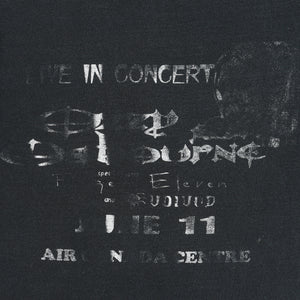 LIVE IN CONCERT
Ozzy
Osbourne
special
Eleven
and
JUNE 11
AIR CANADA CENTRE